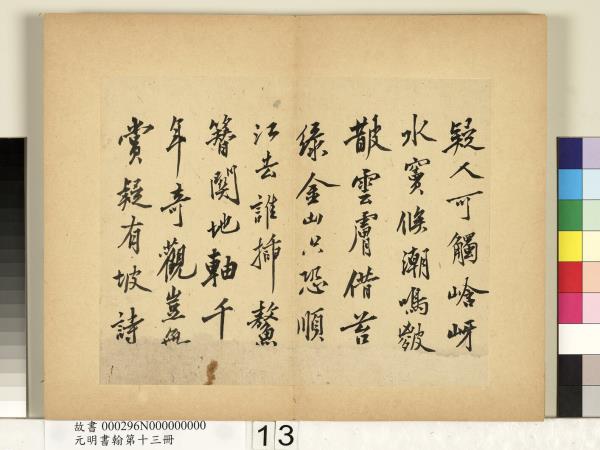 疑人可觸崆岈
水竇候潮鳴皺
皵雲膚借苔
綠金山只恐順
江去誰插鰲
簪關地軸千
年奇觀豈無
賞疑有坡詩
故書 000296N000000000
元明書翰第十三冊
13